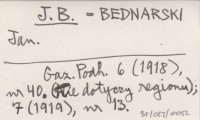 J.B. = BEDNARSKI
Jan.
Gaz. Podh. 6 (1918),
nr 40. (Nie dotyczy regionu);
7 (1919), nr 13.